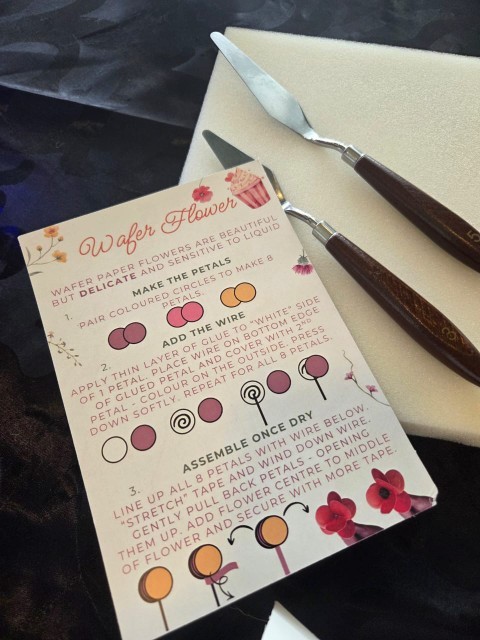 Wafer Flower
WAFER PAPER FLOWERS ARE BEAUTIFUL
BUT DELICATE AND SENSITIVE TO LIQUID
MAKE THE PETALS
1.
PAIR COLOURED CIRCLES TO MAKE 8
PETALS.
ADD THE WIRE
2.
APPLY THIN LAYER OF GLUE TO "WHITE" SIDE
OF 1 PETAL. PLACE WIRE ON BOTTOM EDGE
OF GLUED PETAL AND COVER WITH 2ND
PETAL - COLOUR ON THE OUTSIDE. PRESS
DOWN SOFTLY. REPEAT FOR ALL 8 PETALS.
ASSEMBLE ONCE DRY
3.
LINE UP ALL 8 PETALS WITH WIRE BELOW.
"STRETCH" TAPE AND WIND DOWN WIRE.
GENTLY PULL BACK PETALS - OPENING
THEM UP. ADD FLOWER CENTRE TO MIDDLE
OF FLOWER AND SECURE WITH MORE TAPE.